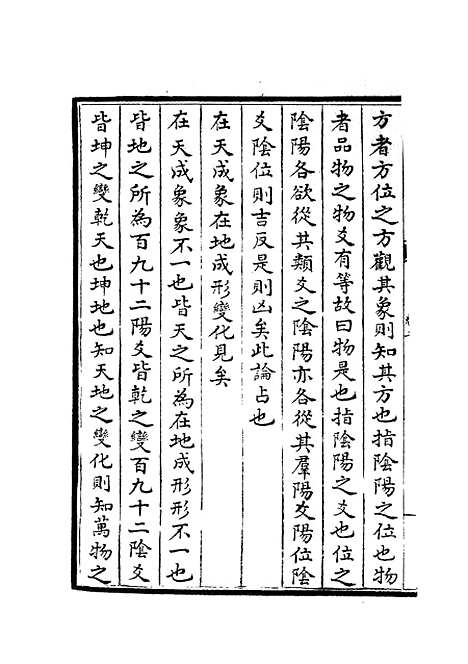 方者方位之方觀其象則知其方也指陰陽之位也物
者品物之物爻有等故曰物是也指陰陽之爻也位之
陰陽各欲從其類爻之陰陽亦各從其羣陽爻陽位陰
爻陰位則吉反是則凶矣此論占也
在天成象在地成形變化見矣
在天成象象不一也皆天之所為在地成形形不一也
皆地之所為百九十二陽爻皆乾之變百九十二陰爻
皆坤之變乾天也坤地也知天地之變化則知萬物之